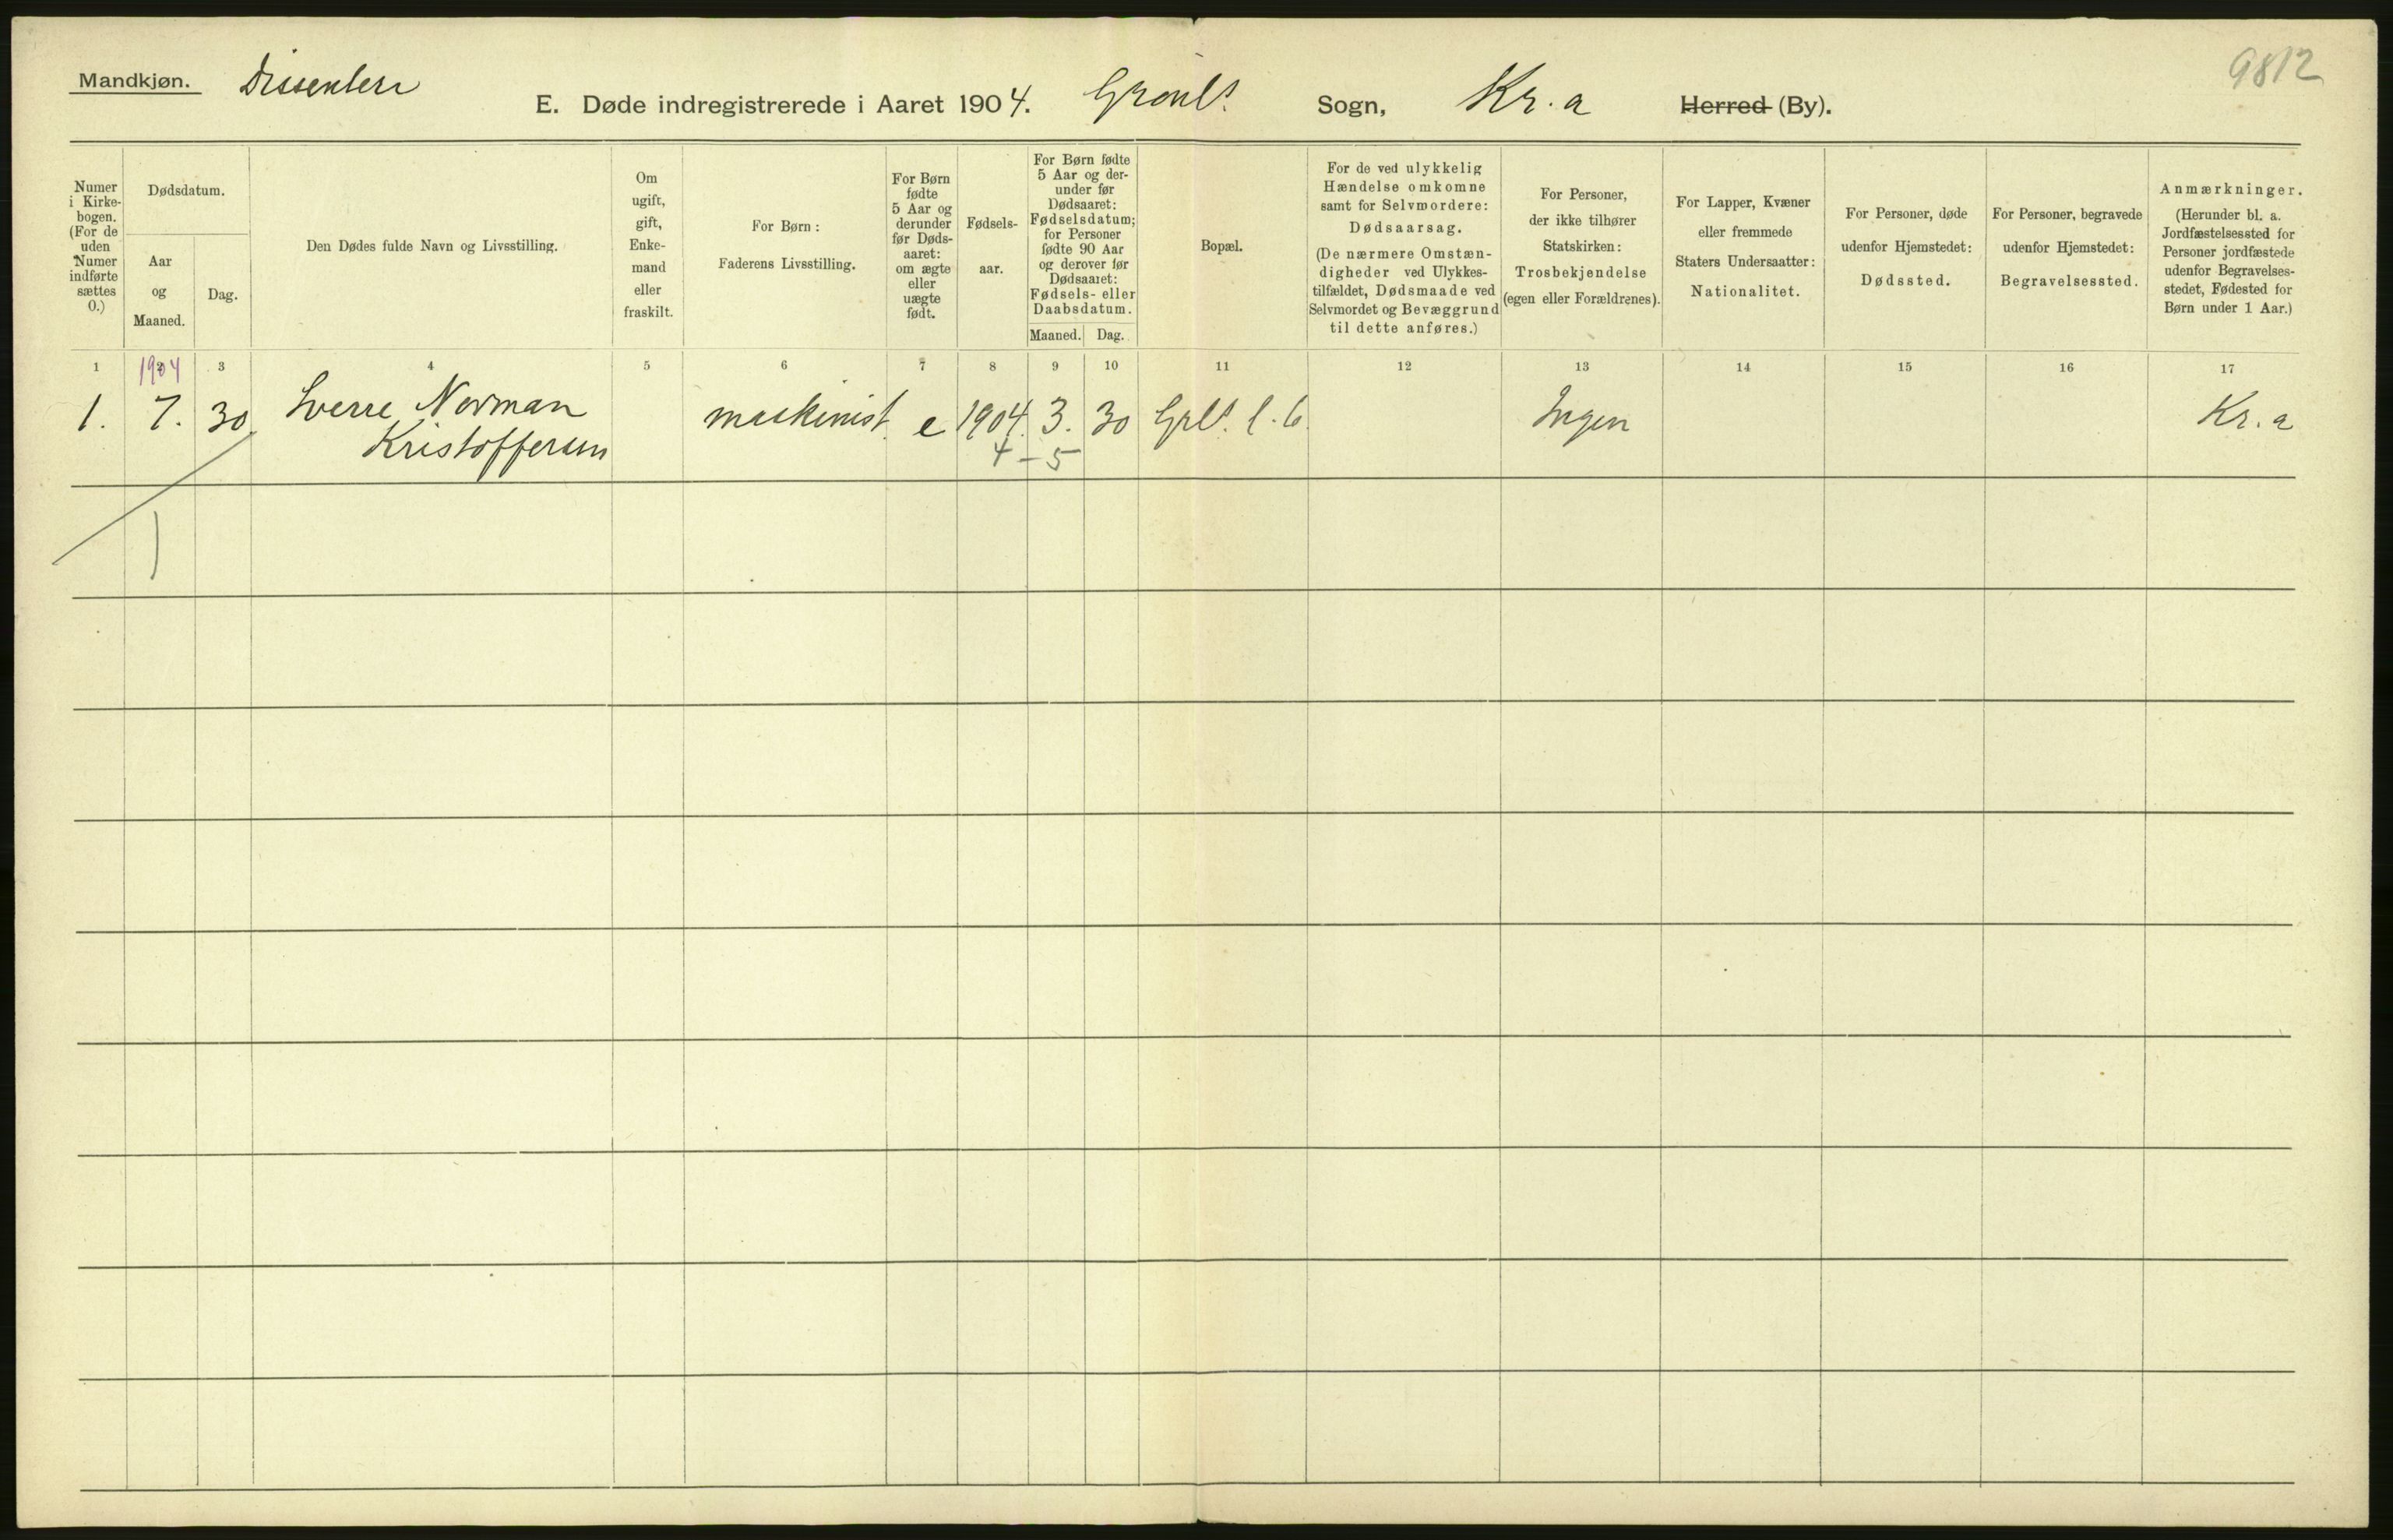 Mandkjøn. Dissentere
E. Døde indregistrerede i Aaret 1904. Grønl. Sogn, Kr.a Herred (By).
9812
Numer
i Kirke-
bogen.
(For de
uden
Numer
indførte
sættes
0.)
Dødsdatum.
Aar
og
Maaned.
Dag.
Den Dødes fulde Navn og Livsstilling.
Om
ugift,
gift,
Enke-
mand
eller
fraskilt.
For Børn:
Faderens Livsstilling.
For Børn
fødte
5 Aar og
derunder
før Døds-
aaret:
om ægte
eller
uægte
født.
Fødsels-
aar.
For Børn fødte
5 Aar og der-
under før
Dødsaaret:
Fødselsdatum;
for Personer
fødte 90 Aar
og derover før
Dødsaaret:
Fødsels- eller
Daabsdatum.
Maaned. Dag.
Bopæl.
For de ved ulykkelig
Hændelse omkomne
samt for Selvmordere:
Dødsaarsag.
(De nærmere Omstæn-
digheder ved Ulykkes-
tilfældet, Dødsmaade ved
Selvmordet og Bevæggrund
til dette anføres.)
For Personer,
der ikke tilhører
Statskirken:
Trosbekjendelse
(egen eller Forældrenes).
For Lapper, Kvæner
eller fremmede
Staters Undersaatter:
Nationalitet.
For Personer, døde
udenfor Hjemstedet:
Dødssted.
For Personer, begravede
udenfor Hjemstedet:
Begravelsessted.
Anmærkninger.
(Herunder bl. a.
Jordfæstelsessted for
Personer jordfæstede
udenfor Begravelses-
stedet, Fødested for
Børn under 1 Aar.)
1 1904 3 4 5 6 7 8 9 10 11 12 13 14 15 16 17
1. 7. 30. Sverre Norman maskinist. e 1904. 3. 30 Ingen Kr.a
Kristoffersen 4-5
1